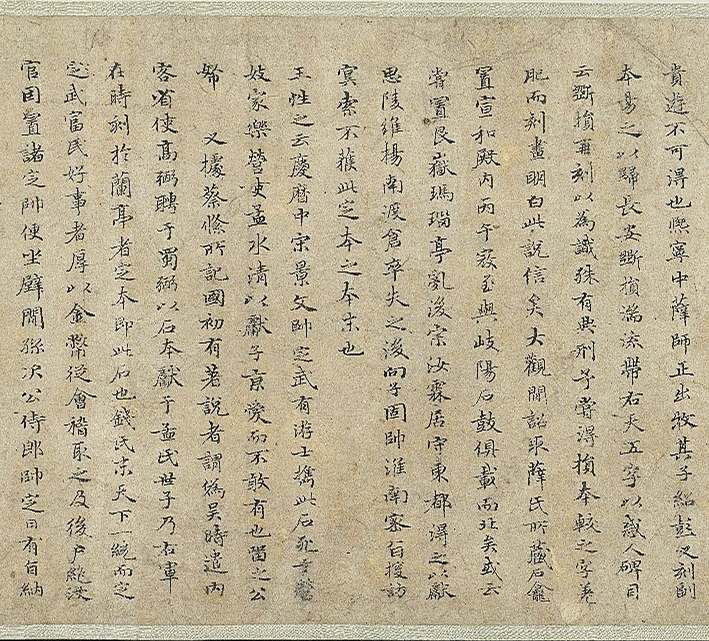 貴遊不可得也熙寧中薛師正出牧其子紹彭又刻副
本易之以歸長安斷損湍流帶右天五字以惑人碑目
云斷損再刻以為識殊有典刑予嘗得損本較之字差
肥而刻畫明白此說信矣大觀間詔取薛氏所藏石龕
置宣和殿內丙午寇至與岐陽石鼓俱載而北矣或云
嘗置艮嶽瑪瑙亭亂後宗汝霖居守東都得之以獻
思陵維揚南渡倉卒失之後向子固帥淮南密旨搜訪
冥索不獲此定本之本末也
王性之云慶曆中宋景文帥定武有游士攜此石死于營
妓家樂營使孟水清以獻子京愛而不敢有也留之公
帑　又據蔡絛所記國初有著說者謂為吳時遣內
客省使高弼聘于蜀弼以石本獻于孟氏世子乃右軍
在時刻於蘭亭者定本即此石也錢氏末天下一統而之
定武富民好事者厚以金幣從會稽取之及後戶絕沒
官因置諸定帥便坐壁間孫次公侍郎帥定日有旨納